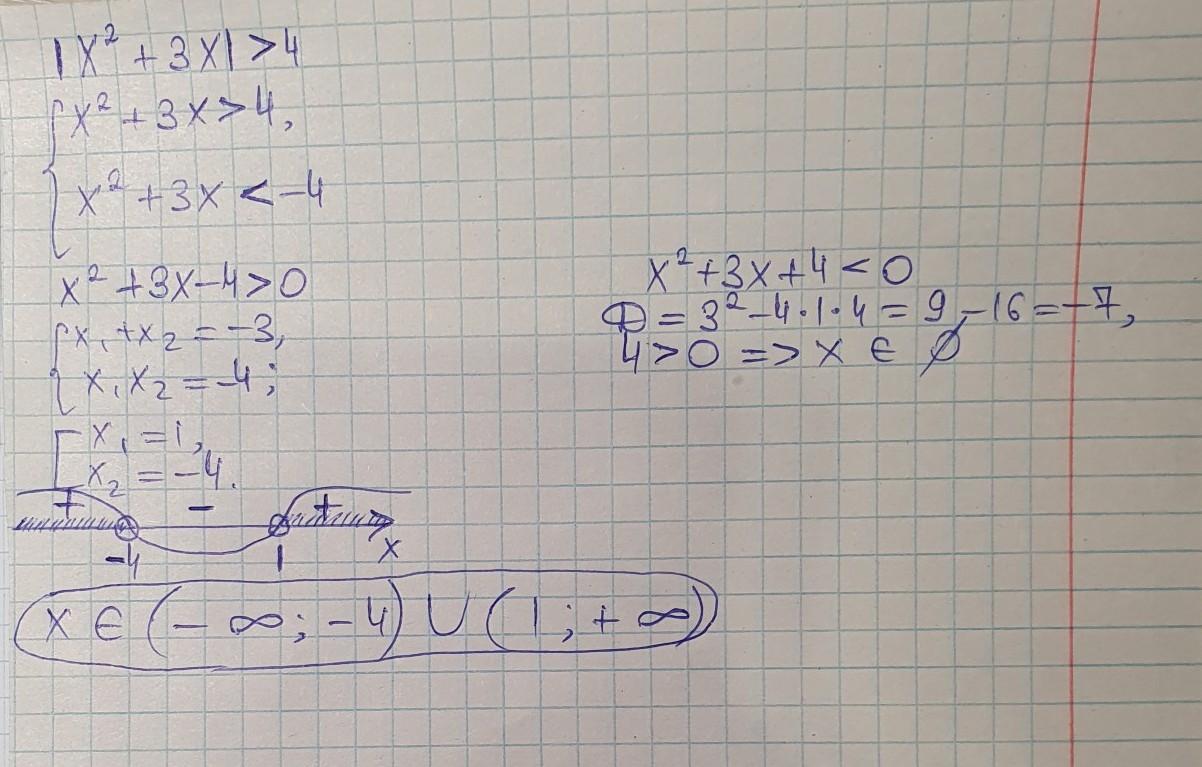 |x² + 3x| > 4
{ x² + 3x > 4,
x² + 3x < -4
x² + 3x - 4 > 0
{ x₁ + x₂ = -3,
x₁x₂ = -4;
[ x₁ = 1,
x₂ = -4.
+ - +
-4 1 x
x ∈ (-∞; -4) ∪ (1; +∞)
x² + 3x + 4 < 0
D = 3² - 4·1·4 = 9 - 16 = -7,
4 > 0 => x ∈ ∅